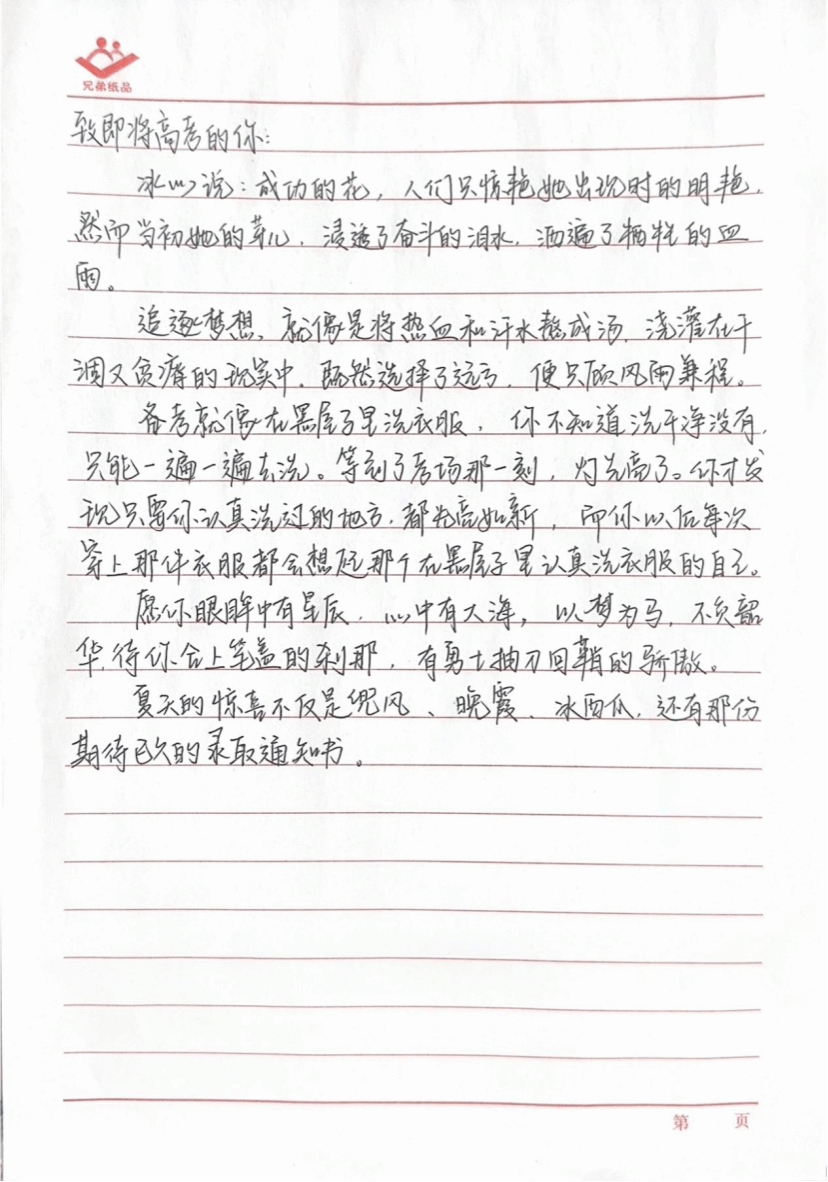 兄弟纸品
致即将高考的你:
冰心说:成功的花,人们只惊艳她出现时的明艳,
然而当初她的芽儿,浸透了奋斗的泪水,洒遍了牺牲的血
雨。
追逐梦想,就像是将热血和汗水熬成汤,浇灌在干
涸又贫瘠的现实中,既然选择了远方,便只顾风雨兼程。
备考就像在黑屋子里洗衣服,你不知道洗干净没有,
只能一遍一遍去洗。等到了考场那一刻,灯光亮了。你才发
现只要你认真洗过的地方,都光亮如新,而你以后每次
穿上那件衣服都会想起那个在黑屋子里认真洗衣服的自己。
愿你眼眸中有星辰,心中有大海,以梦为马,不负韶
华,待你合上笔盖的刹那,有勇士抽刀回鞘的骄傲。
夏天的惊喜不仅是晚风、晚霞、冰西瓜,还有那份
期待已久的录取通知书。
第 页